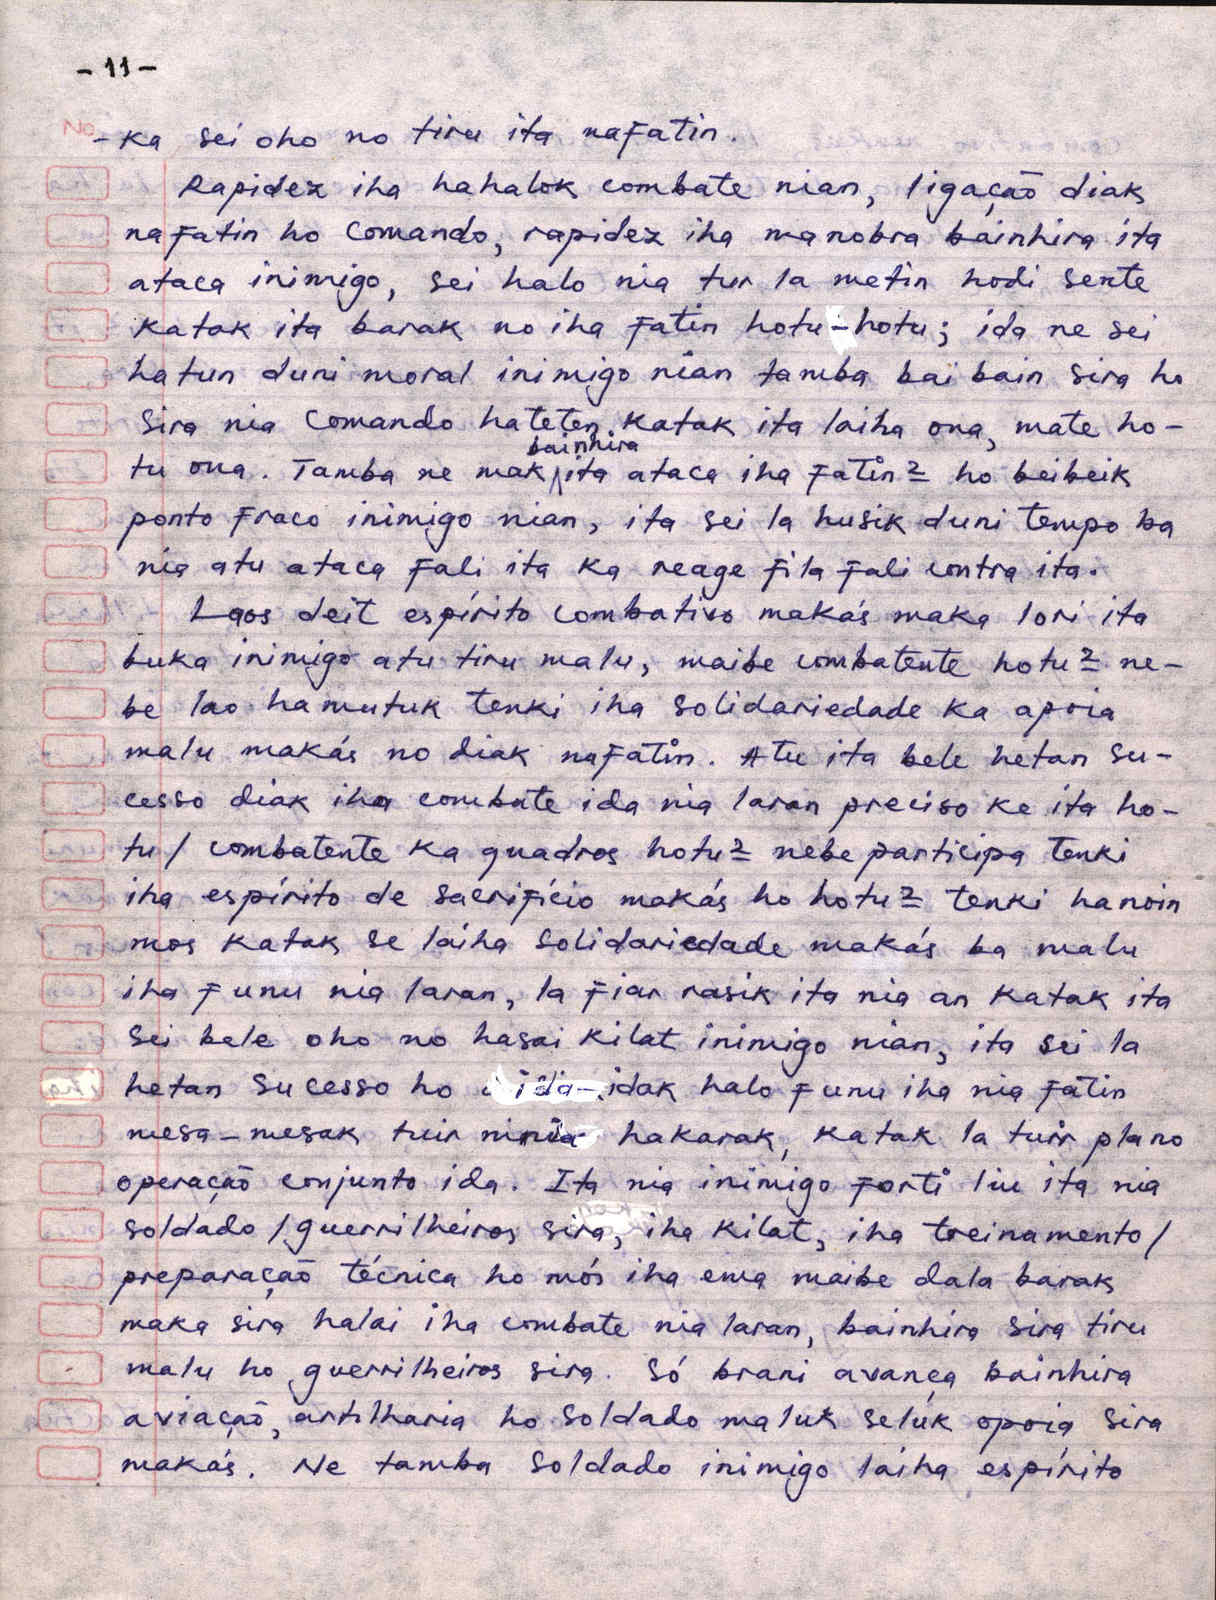 - 11 -
- ka sei oho no tiru ita nafatin.
Rapidez iha hahalok combate nian, ligação diak
nafatin ho Comando, rapidez iha manobra bainhira ita
ataca inimigo, sei halo nia tur la metin hodi sente
katak ita barak no iha fatin hotu-hotu; ida ne sei
hatun duni moral inimigo nian tamba bai bain sira ho
sira nia Comando hateten katak ita laiha ona, mate ho-
bainhira
tu ona. Tamba ne mak ita ataca iha fatin2 ho beibeik
ponto fraco inimigo nian, ita sei la husik duni tempo ba
nia atu ataca fali ita ka reage fila fali contra ita.
Laos deit espírito combativo makás maka lori ita
buka inimigo atu tiru malu, maibe combatente hotu2 ne-
be lao hamutuk tenki iha solidariedade ka apoia
malu makás no diak nafatin. Atu ita bele hetan su-
cesso diak iha combate ida nia laran preciso ke ita ho-
tu / combatente ka quadros hotu2 nebe participa tenki
iha espírito de sacrifício makás ho hotu2 tenki hanoin
mos katak se laiha solidariedade makás ba malu
iha funu nia laran, la fiar rasik ita nia an katak ita
sei bele oho no hasai kilat inimigo nian, ita sei la
hetan sucesso ho ida-idak halo funu iha nia fatin
mesa-mesak tuir ninia hakarak, katak la tuir plano
operação conjunto ida. Ita nia inimigo forti liu ita nia
soldado / guerrilheiros sira, iha kilat, iha treinamento /
preparação técnica ho mós iha ema maibe dala barak
maka sira halai iha combate nia laran, bainhira sira tiru
malu ho guerrilheiros sira. Só brani avança bainhira
aviação, artilharia ho soldado maluk seluk apoia sira
makás. Ne tamba soldado inimigo láiha espírito